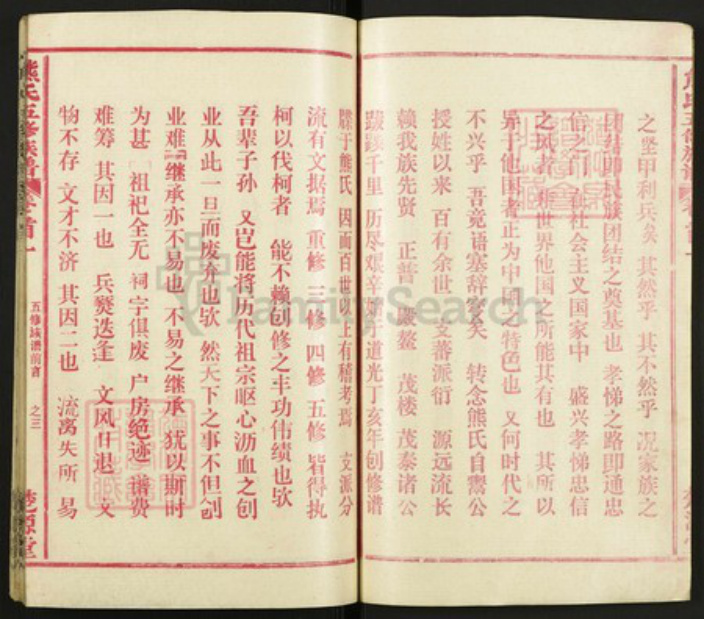 之坚甲利兵矣 其然乎 其不然乎 况家族之
团结即民族团结之奠基也 孝悌之路即通忠
信之门 在社会主义国家中 盛兴孝悌忠信
之风者 非世界他国之所能其有也 其所以
异于他国者正为中国之特色也 又何时代之
不兴乎 吾竟语塞辞穷矣 转念熊氏自鬻公
授姓以来 百有余世 支蕃派衍 源远流长
赖我族先贤 正普 殿鳌 茂楼 茂泰诸公
跋涉千里 历尽艰辛 于道光丁亥年创修谱
牒于熊氏 因而百世以上有稽考焉 支派分
流有文据焉 重修 三修 四修 五修 皆得执
柯以伐柯者 能不赖创修之丰功伟绩也欤
吾辈子孙 又岂能将历代祖宗呕心沥血之创
业从此一旦而废弃也欤 然天下之事不但创
业难 继承亦不易也 不易之继承 犹以斯时
为甚 祖祀全无 祠宇俱废 户房绝迹 谱费
难筹 其因一也 兵燹迭逢 文风日退 文
物不存 文才不济 其因二也 流离失所 易
五修族谱前言 之三
熊氏五修族谱 卷首一
楚源堂
FamilySearch